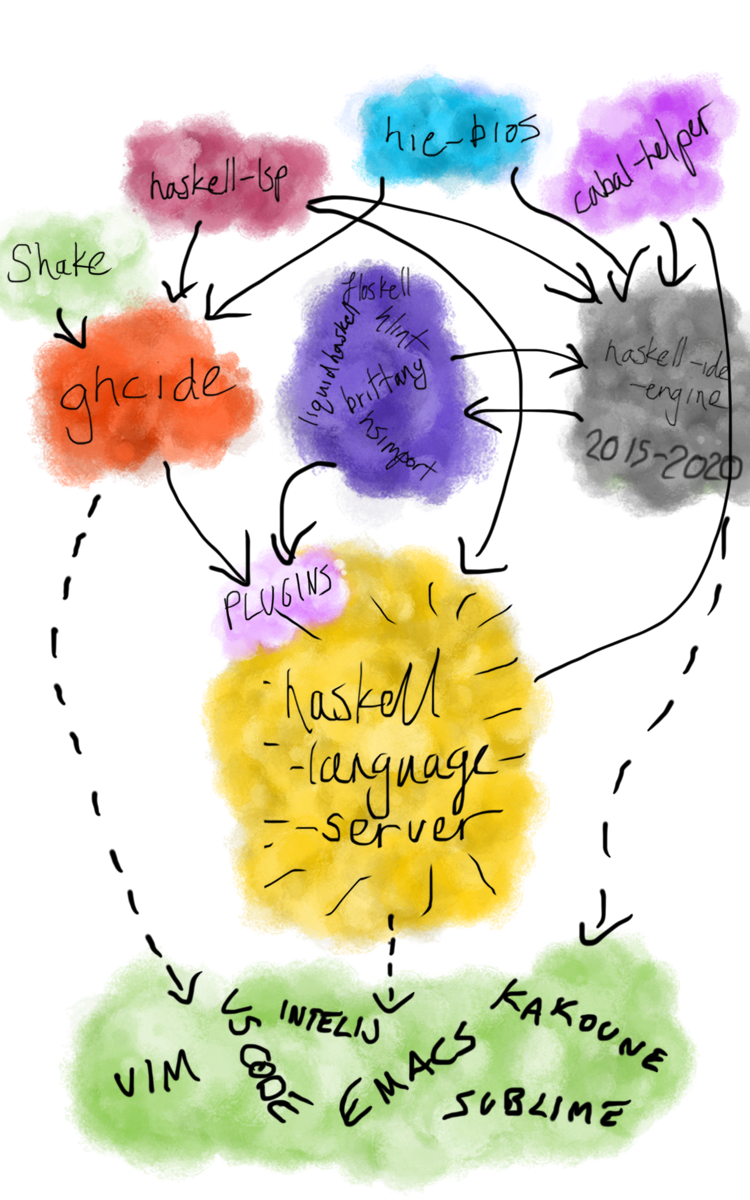 hie-bios
cabal-helper
haskell-lsp
Shake
floskell
hlint
liquidhaskell
brittany
hsimport
haskell-ide
-engine
2015-2020
ghcide
PLUGINS
haskell
-language-
-server
VIM
VS CODE
INTELIJ
EMACS
KAKOUNE
SUBLIME